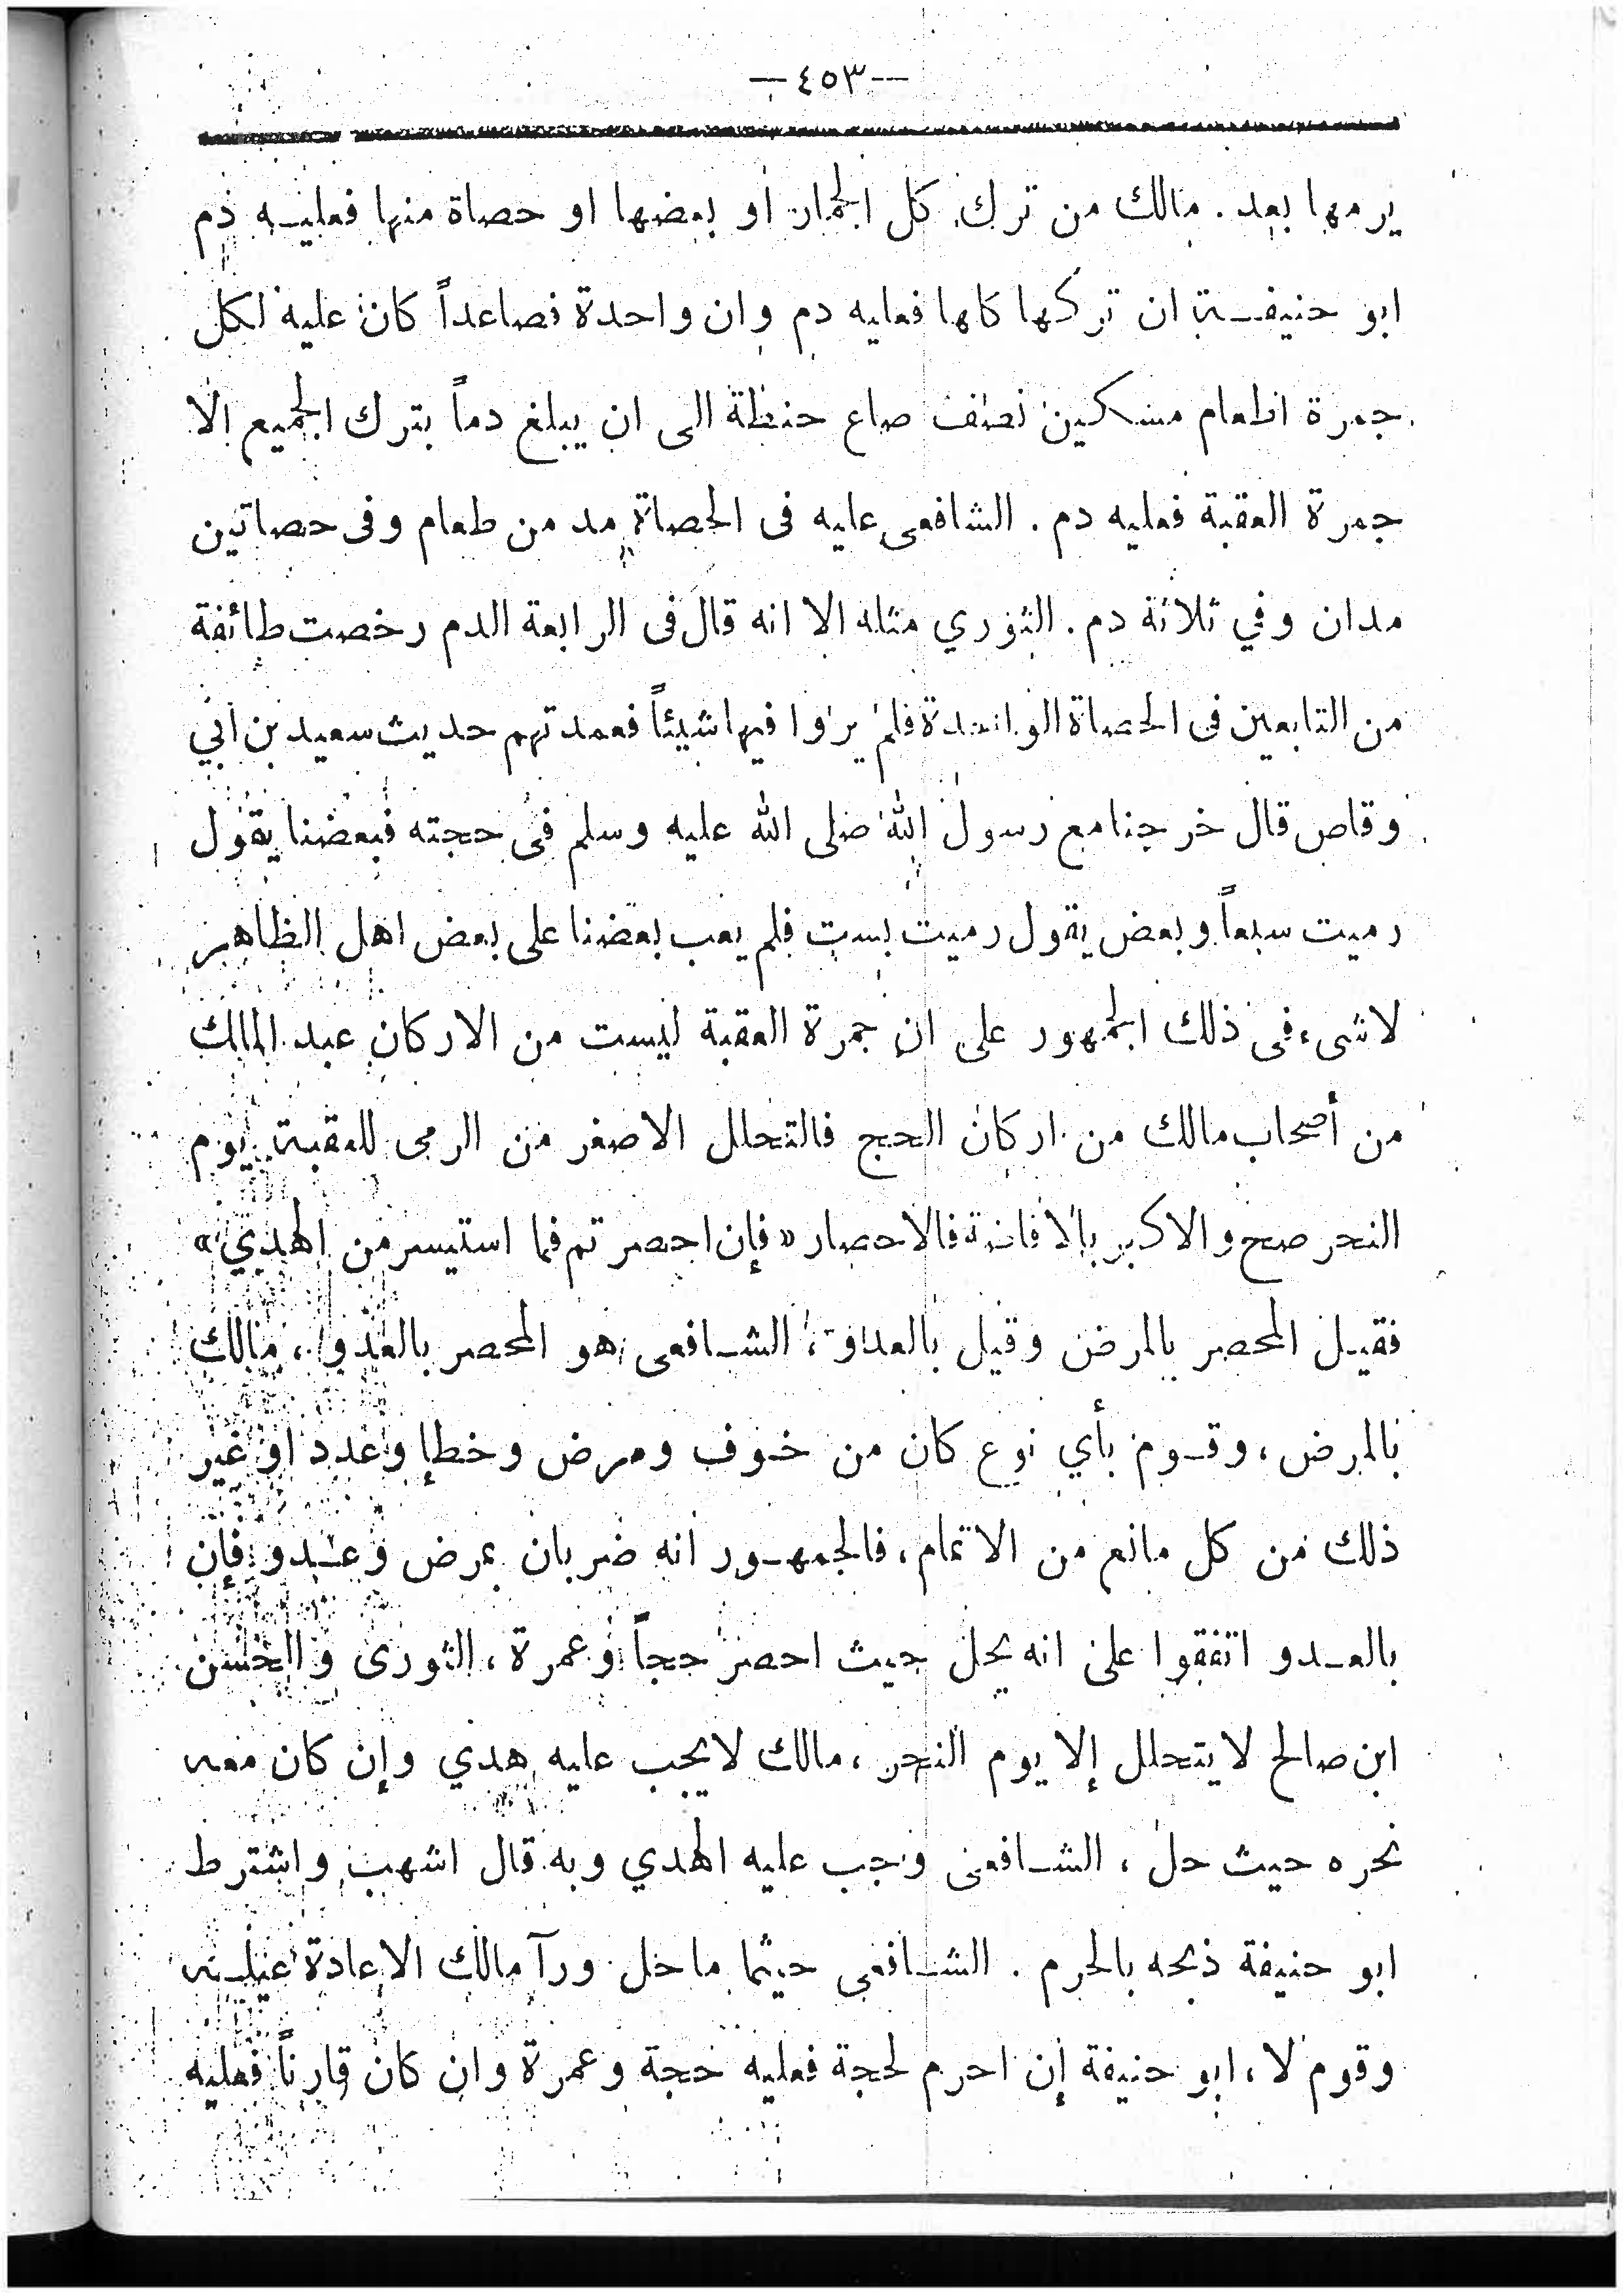 —٤٥٣—
يرمها بعد. مالك من ترك كل الجمار أو بعضها او حصاة منها فعليه دم
ابو حنيفة ان تركها كلها فعليه دم وان واحدة فصاعداً كان عليه لكل
جمرة اطعام مسكين نصف صاع حنطة الى ان يبلغ دماً بترك الجميع إلا
جمرة العقبة فعليه دم. الشافعى عليه فى الحصاة مد من طعام وفى حصاتين
مدان وفي ثلاثة دم. الثوري مثله الا انه قال فى الرابعة الدم رخصت طائفة
من التابعين فى الحصاة الواحدة فلم يروا فيها شيئاً فعمدتهم حديث سعيد بن أبي
وقاص قال خرجنا مع رسول الله صلى الله عليه وسلم فى حجته فبعضنا يقول
رميت سبعاً وبعض يقول رميت بست فلم يعب بعضنا على بعض اهل الظاهر
لاشىء فى ذلك الجمهور على ان جمرة العقبة ليست من الاركان عبد المالك
من أصحاب مالك من اركان الحج فالتحلل الاصغر من الرمى للعقبة يوم
النحر صح والاكبر بالافاضة فالاحصار «فإن احصرتم فما استيسر من الهدي»
فقيل المحصر بالمرض وقيل بالعداوة، الشافعى هو المحصر بالعدو، مالك
بالمرض، وقوم بأي نوع كان من خوف ومرض وخطإ وعدد او غير
ذلك من كل مانع من الاتمام، فالجمهور انه ضربان بمرض وعدو فإن
بالعدو اتفقوا على انه يحل حيث احصر حجاً أو عمرة، الثورى والحسن
ابن صالح لا يتحلل إلا يوم النحر، مالك لا يجب عليه هدي وإن كان معه
نحره حيث حل، الشافعى وجب عليه الهدي وبه قال اشهب واشترط
ابو حنيفة ذبحه بالحرم. الشافعى حيثما ماحل ورآ مالك الاعادة عليه
وقوم لا، ابو حنيفة إن احرم لحجة فعليه حجة وعمرة وان كان قارناً فعليه